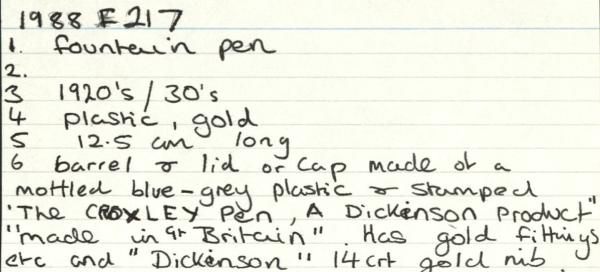 1988 E217
1. fountain pen
2.
3 1920's / 30's
4 plastic, gold
5 12.5 cm long
6 barrel & lid or cap made of a
mottled blue-grey plastic & stamped
"The CROXLEY Pen, A Dickinson product"
"made in Gt Britain". Has gold fittings
etc and "Dickinson" 14crt gold nib.